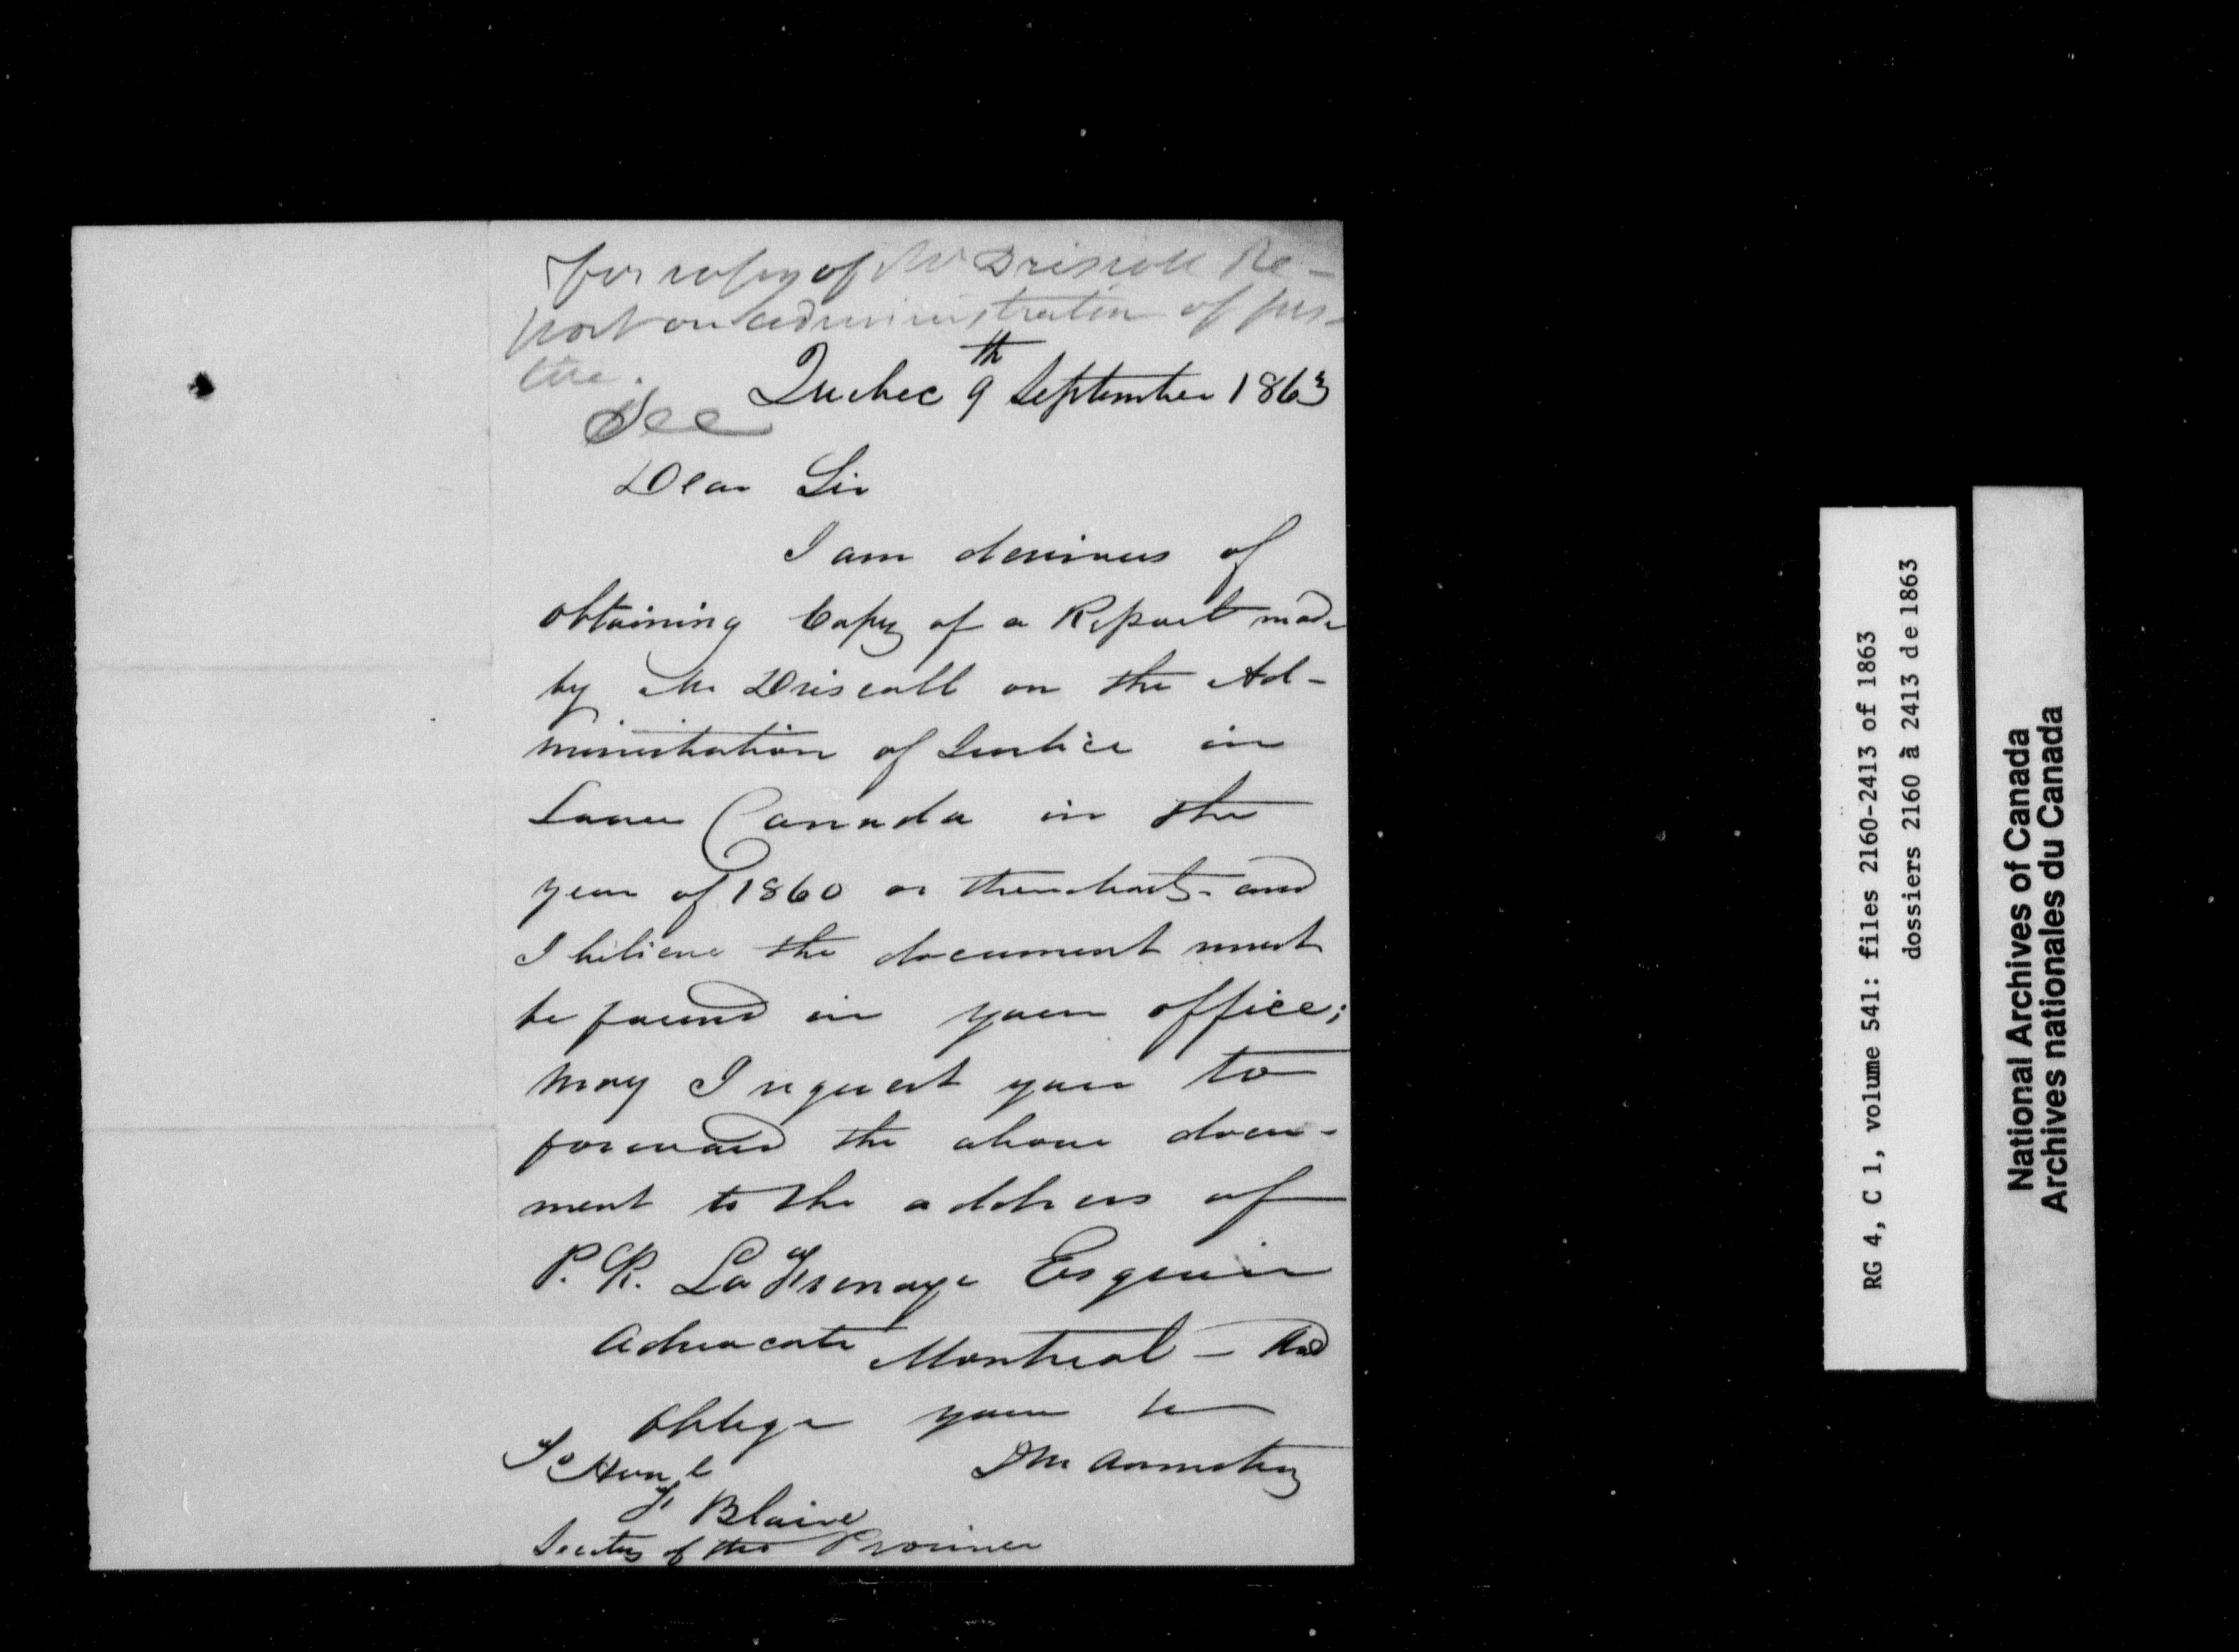 for copy of Mr Driscoll Re-
port on administration of jus-
tice.
See
Quebec 9th September 1863
Dear Sir
I am desirous of
obtaining Copy of a Report made
by Mr Driscoll on the Ad-
ministration of Justice in
Lower Canada in the
year of 1860 or thereabouts. and
I believe the document must
be found in your office;
may I request you to
forward the above docu-
ment to the address of
P. R. LaFrenaye Esquire
Advocate Montreal - And
Oblige your
J M Armstrong
To Hon
Blaire
Secretary of the Province
RG 4, C 1, volume 541: files 2160-2413 of 1863
dossiers 2160 à 2413 de 1863
National Archives of Canada
Archives nationales du Canada